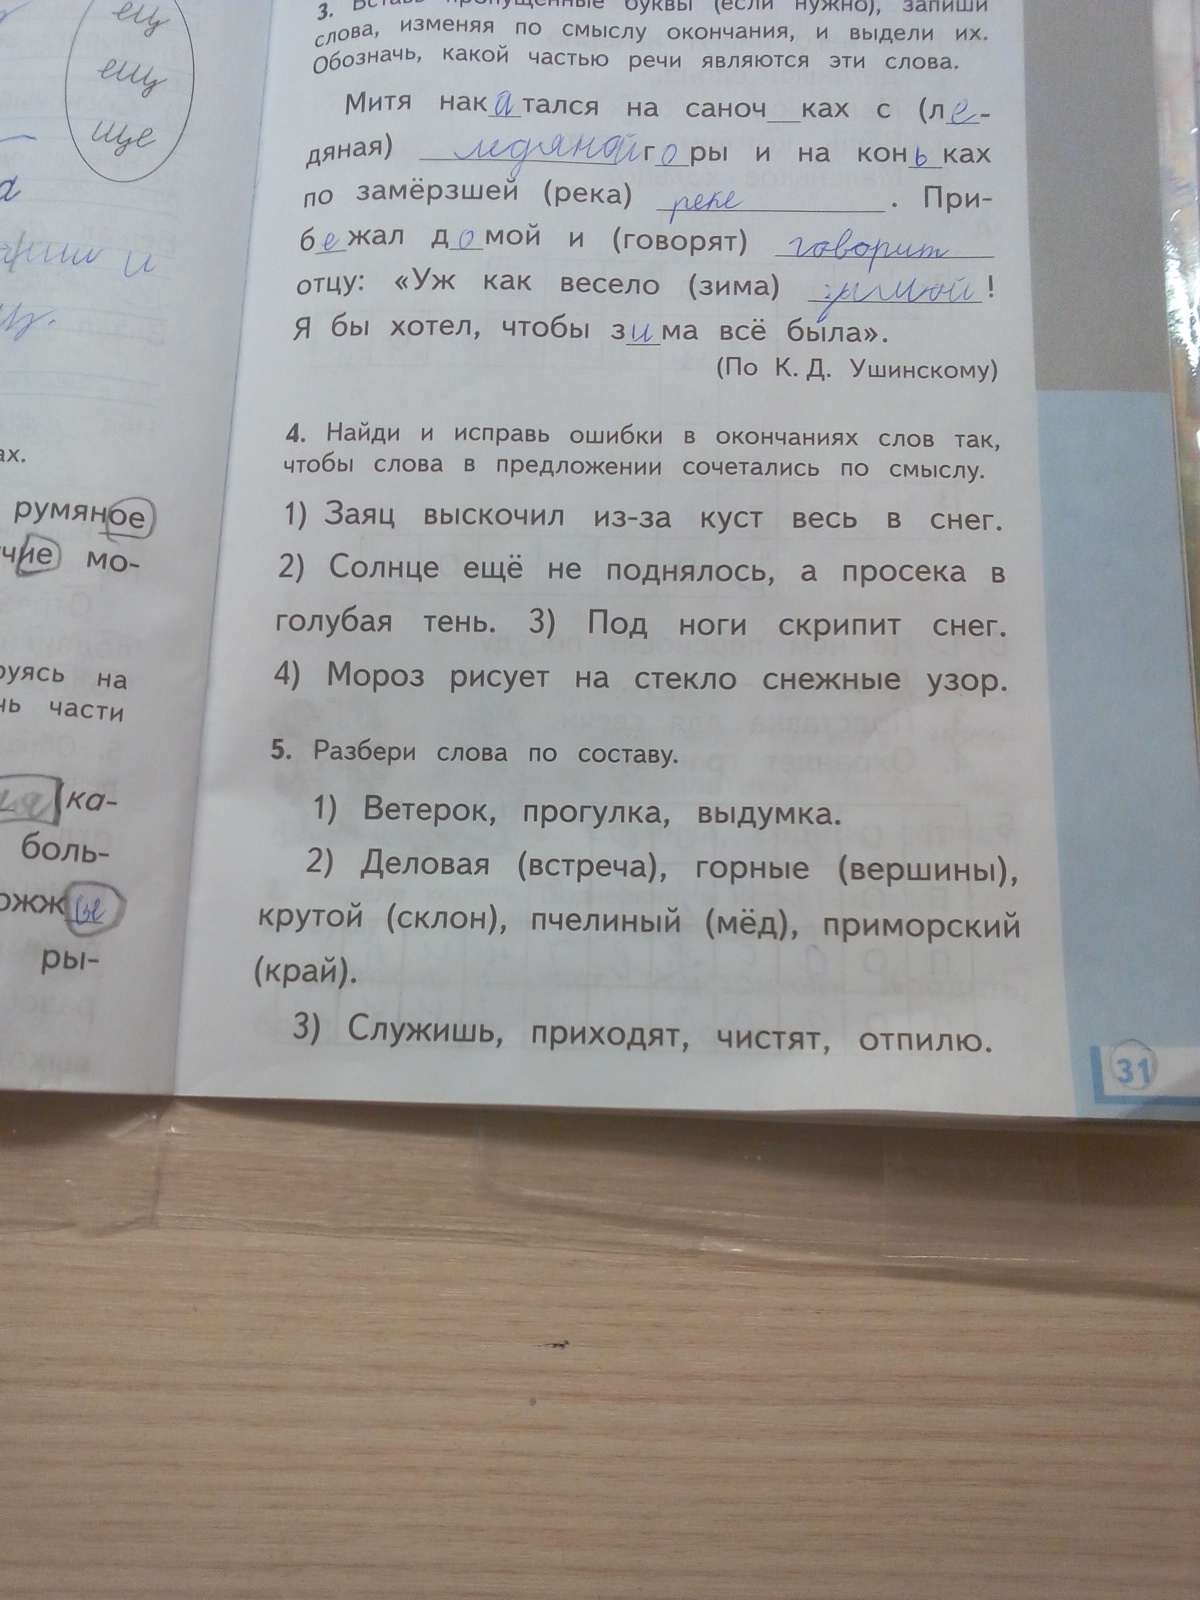 ец
ещ
ище
а
и
ах.
румяное
чие мо-
руясь на
части
ка-
боль-
ожжве
ры-
3. Вставь пропущенные буквы (если нужно), запиши
слова, изменяя по смыслу окончания, и выдели их.
Обозначь, какой частью речи являются эти слова.
Митя накатался на саноч__ках с (ле-
дяная) ледяной горы и на коньках
по замёрзшей (река) реке. При-
бежал домой и (говорят) говорит
отцу: «Уж как весело (зима) зимой!
Я бы хотел, чтобы зима всё была».
(По К. Д. Ушинскому)
4. Найди и исправь ошибки в окончаниях слов так,
чтобы слова в предложении сочетались по смыслу.
1) Заяц выскочил из-за куст весь в снег.
2) Солнце ещё не поднялось, а просека в
голубая тень. 3) Под ноги скрипит снег.
4) Мороз рисует на стекло снежные узор.
5. Разбери слова по составу.
1) Ветерок, прогулка, выдумка.
2) Деловая (встреча), горные (вершины),
крутой (склон), пчелиный (мёд), приморский
(край).
3) Служишь, приходят, чистят, отпилю.
31